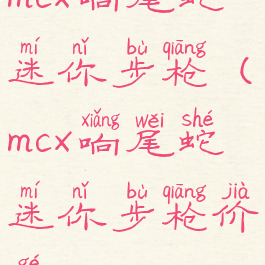 mcx响尾蛇
mí nǐ bù qiāng
迷你步枪（
xiǎng wěi shé
mcx响尾蛇
mí nǐ bù qiāng jià
迷你步枪价
gé